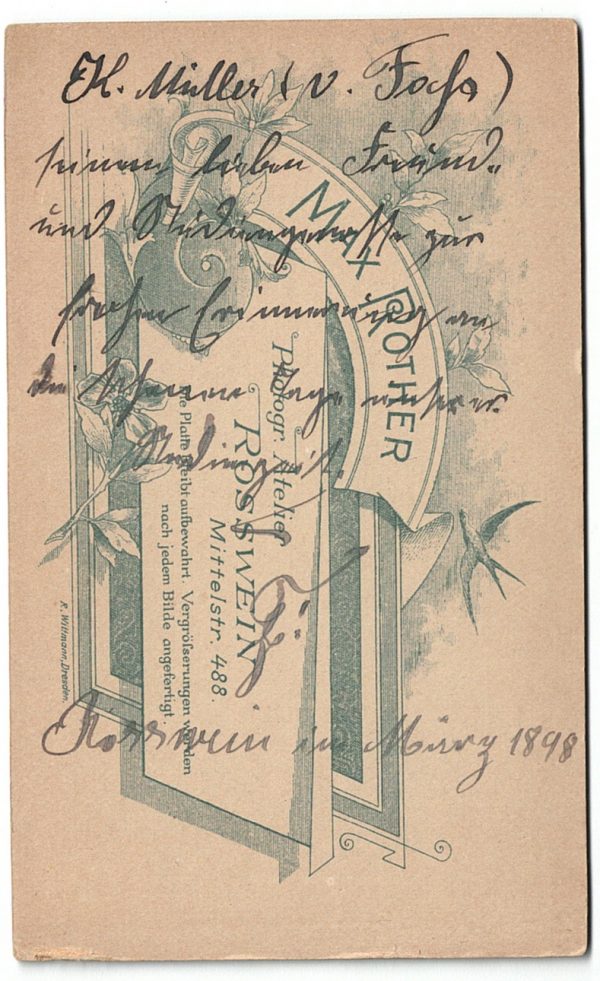 K. Müller (v. Fachs)
seinem lieben Freund.
und Studiengenosse zur
frohen Erinnerung an
die schönen Tage unserer
Studienzeit.
Rosswein im März 1898
MAX ROTHER
Photogr. Atelier
ROSSWEIN
Mittelstr. 488.
Die Platte bleibt aufbewahrt. Vergröſserungen werden
nach jedem Bilde angefertigt.
R. Wittmann, Dresden.